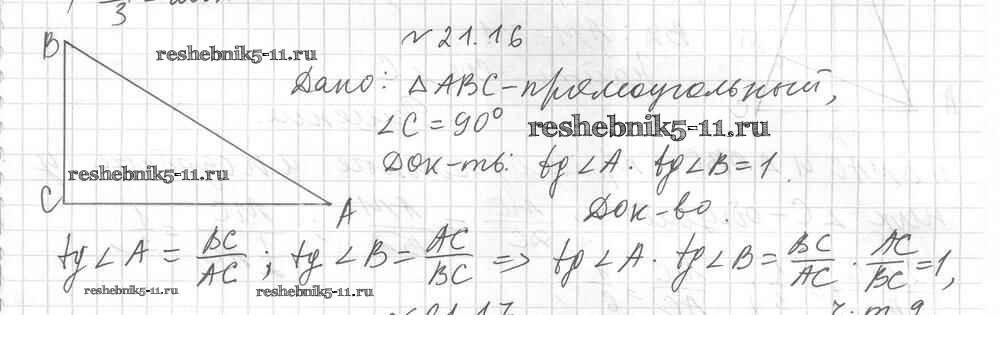 3
№ 21.16
B
reshebnik5-11.ru
Дано: △ABC - прямоугольный,
∠C = 90°
reshebnik5-11.ru
Док-ть: tg∠A · tg∠B = 1.
reshebnik5-11.ru
C
A
Док-во.
tg∠A = BC/AC; tg∠B = AC/BC => tg∠A · tg∠B = BC/AC · AC/BC = 1,
reshebnik5-11.ru
reshebnik5-11.ru
ч.т.д.